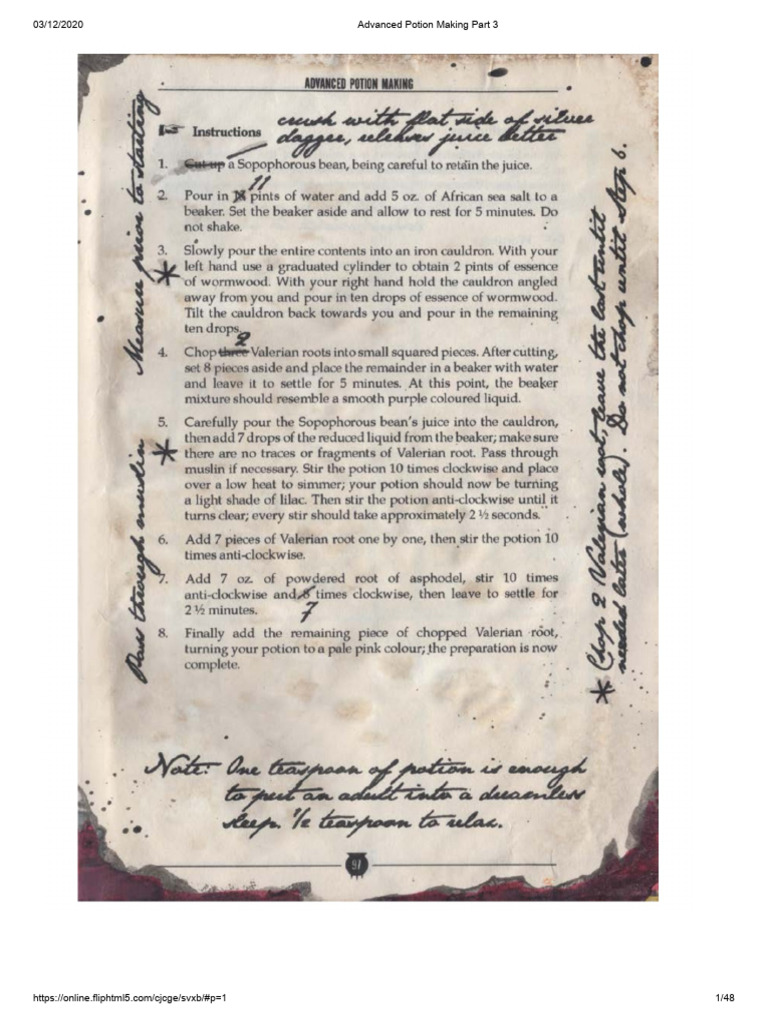 03/12/2020
Advanced Potion Making Part 3
ADVANCED POTION MAKING
crush with flat side of silver
dagger, releases juice better
Instructions
1. Cut up a Sopophorous bean, being careful to retain the juice.
11
2. Pour in pints of water and add 5 oz. of African sea salt to a
beaker. Set the beaker aside and allow to rest for 5 minutes. Do
not shake.
3. Slowly pour the entire contents into an iron cauldron. With your
left hand use a graduated cylinder to obtain 2 pints of essence
of wormwood. With your right hand hold the cauldron angled
away from you and pour in ten drops of essence of wormwood.
Tilt the cauldron back towards you and pour in the remaining
ten drops.
2
4. Chop three Valerian roots into small squared pieces. After cutting,
set 8 pieces aside and place the remainder in a beaker with water
and leave it to settle for 5 minutes. At this point, the beaker
mixture should resemble a smooth purple coloured liquid.
5. Carefully pour the Sopophorous bean's juice into the cauldron,
then add 7 drops of the reduced liquid from the beaker; make sure
there are no traces or fragments of Valerian root. Pass through
muslin if necessary. Stir the potion 10 times clockwise and place
over a low heat to simmer; your potion should now be turning
a light shade of lilac. Then stir the potion anti-clockwise until it
turns clear; every stir should take approximately 2 ½ seconds.
6. Add 7 pieces of Valerian root one by one, then stir the potion 10
times anti-clockwise.
7. Add 7 oz. of powdered root of asphodel, stir 10 times
anti-clockwise and 8 times clockwise, then leave to settle for
2 ½ minutes.
7
8. Finally add the remaining piece of chopped Valerian root,
turning your potion to a pale pink colour; the preparation is now
complete.
Measure prior to starting
*
Pass through muslin
*
* Chop 2 Valerian root, leave the last until
needed later (whole). Do not chop until Step 6.
Note: One teaspoon of potion is enough
to put an adult into a dreamless
sleep. ½ teaspoon to relax.
97
https://online.fliphtml5.com/cjcge/svxb/#p=1
1/48